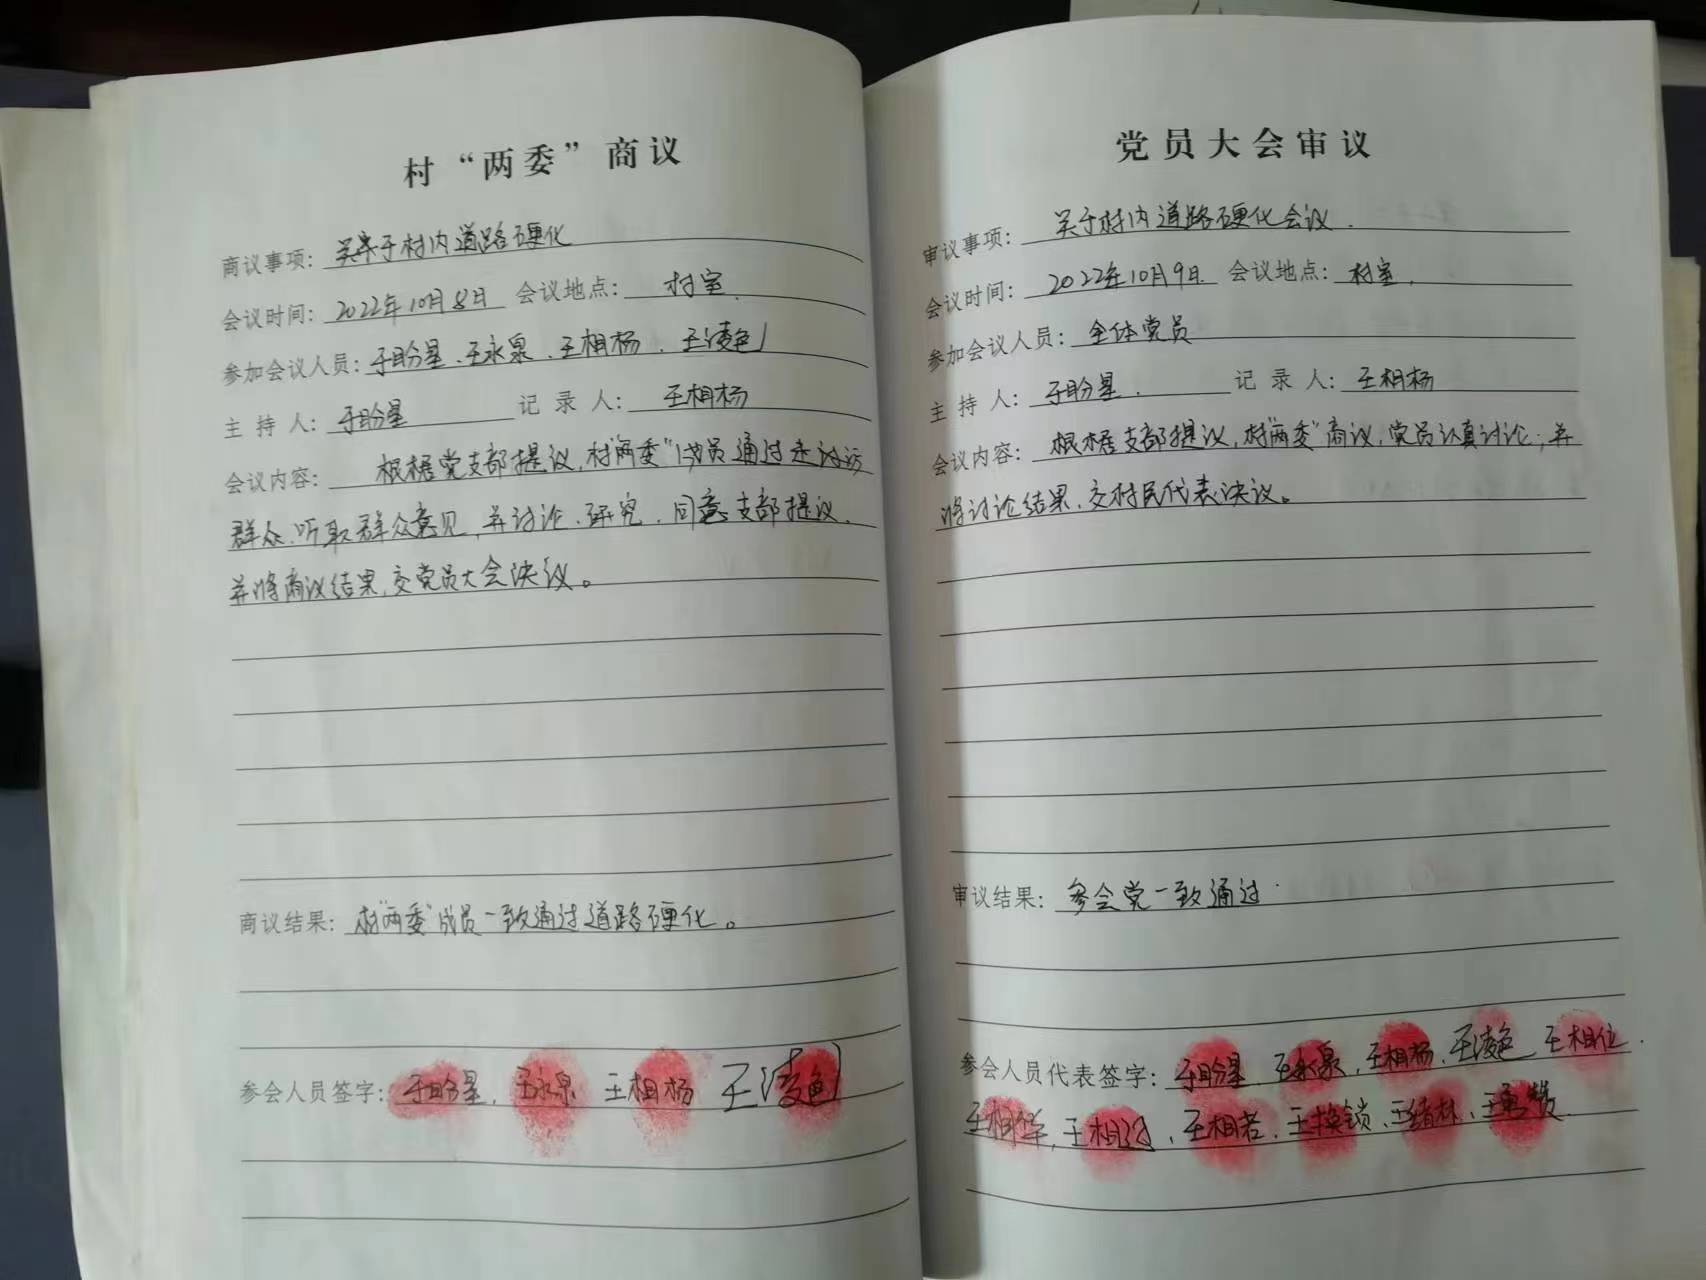 村“两委”商议
商议事项：关于村内道路硬化
会议时间：2022年10月8日 会议地点：村室.
参加会议人员：于盼星、王永泉、王相杨、王凌色
主持人：于盼星 记录人：王相杨
会议内容：根据党支部提议，村“两委”成员通过走访
群众、听取群众意见，并讨论、研究，同意支部提议，
并将商议结果，交党员大会决议。
商议结果：村“两委”成员一致通过道路硬化。
参会人员签字：于盼星，王永泉 王相杨 王凌色
党员大会审议
审议事项：关于村内道路硬化会议.
会议时间：2022年10月9日. 会议地点：村室.
参加会议人员：全体党员
主持人：于盼星. 记录人：王相杨
会议内容：根据支部提议，村“两委”商议，党员认真讨论；并
将讨论结果，交村民代表决议。
审议结果：参会党一致通过.
参会人员代表签字：于盼星、王永泉，王相杨、王凌色 王相位.
王相、王相、王相岩、王换锁、王绪林、王